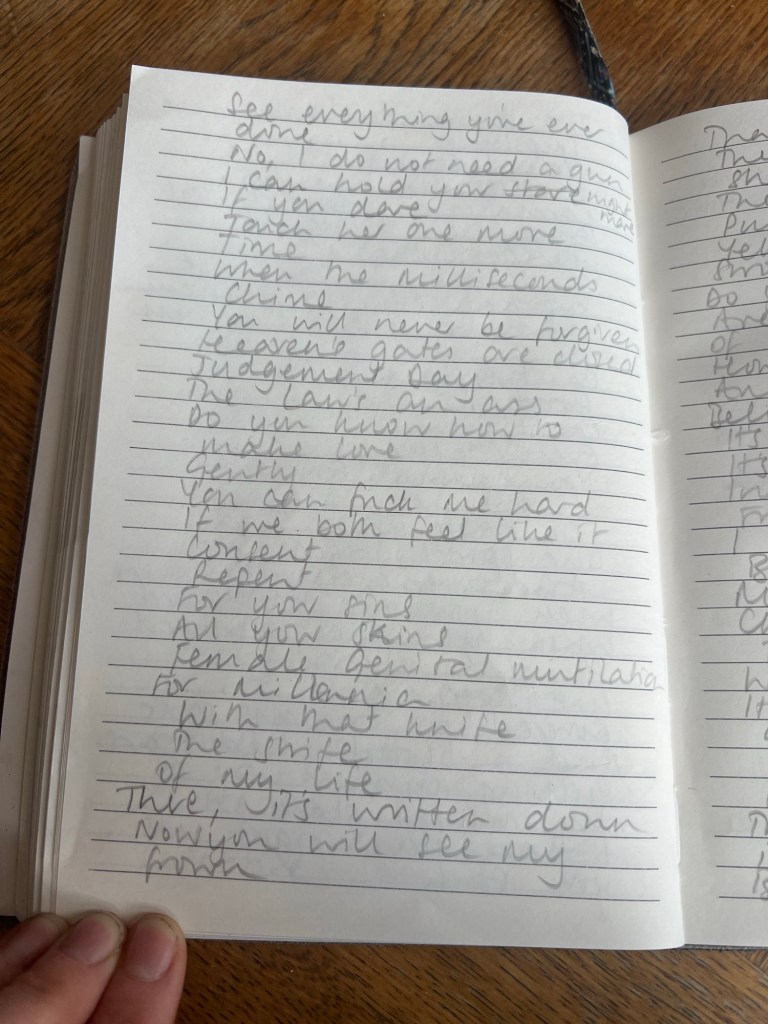 See everything you've ever
done
No, I do not need a gun
I can hold your stare
If you dare
Touch her one more
Time
When the milliseconds
Chime
You will never be forgiven
Heaven's gates are closed
Judgement Day
The Law's an ass
Do you know how to
make love
Gently
You can fuck me hard
If we both feel like it
Consent
Repent
For your sins
All your skins
Female Genital mutilation
For Millennia
With that knife
The strife
Of my life
There, it's written down
Now you will see my
frown